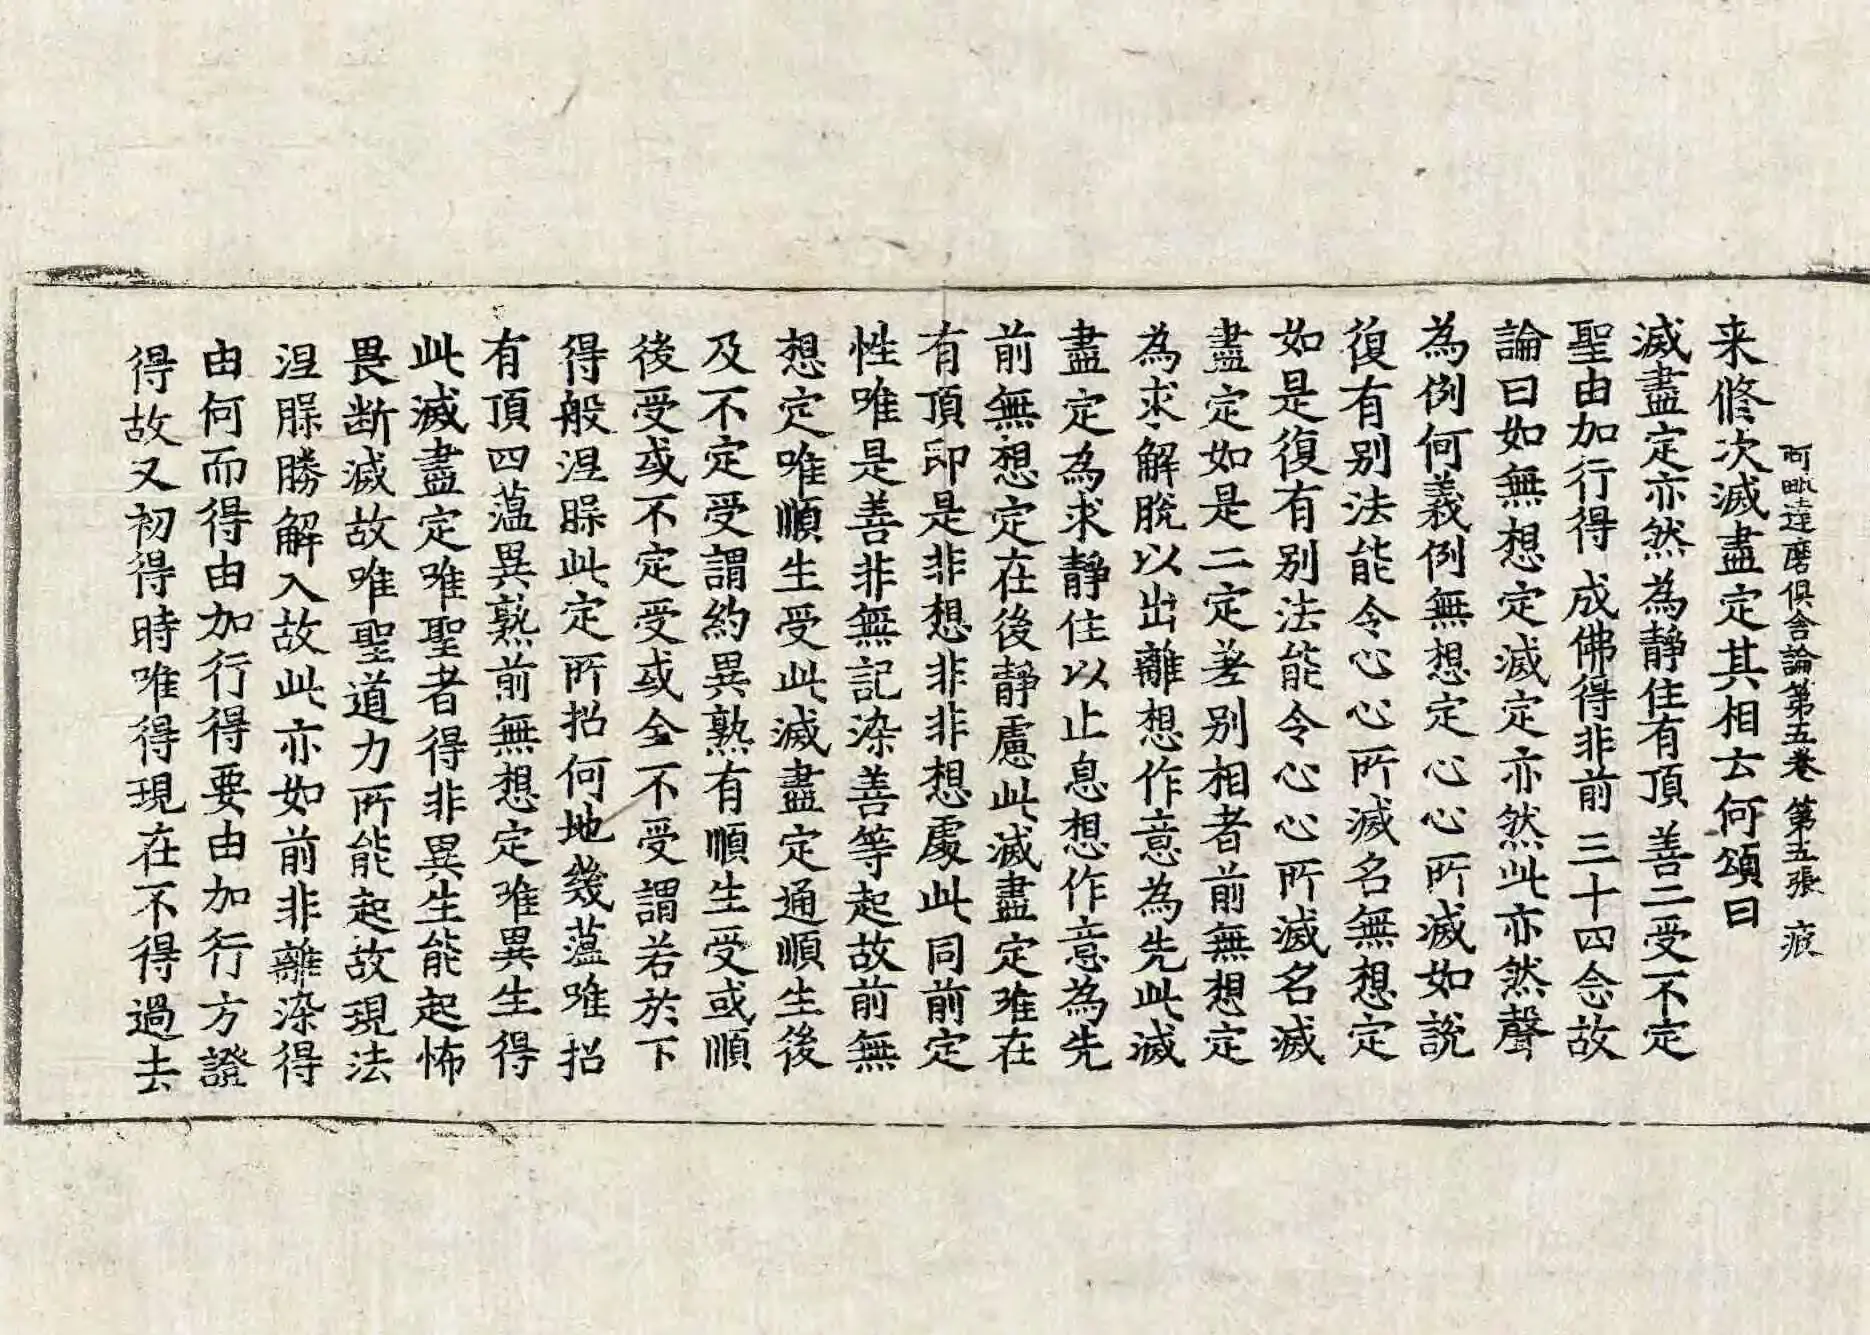 阿毗達磨俱舍論第五卷 第五張 疲
来修次滅盡定其相云何頌曰
滅盡定亦然為靜住有頂 善二受不定
聖由加行得 成佛得非前 三十四念故
論曰如無想定滅定亦然此亦然聲
為例何義例無想定心心所滅如說
復有別法能令心心所滅名無想定
如是復有別法能令心心所滅名滅
盡定如是二定差別相者前無想定
為求解脫以出離想作意為先此滅
盡定為求靜住以止息想作意為先
前無想定在後靜慮此滅盡定唯在
有頂即是非想非非想處此同前定
性唯是善非無記染善等起故前無
想定唯順生受此滅盡定通順生後
及不定受謂約異熟有順生受或順
後受或不定受或全不受謂若於下
得般涅槃此定所招何地幾蘊唯招
有頂四蘊異熟前無想定唯異生得
此滅盡定唯聖者得非異生能起怖
畏断滅故唯聖道力所能起故現法
涅槃勝解入故此亦如前非離染得
由何而得由加行得要由加行方證
得故又初得時唯得現在不得過去